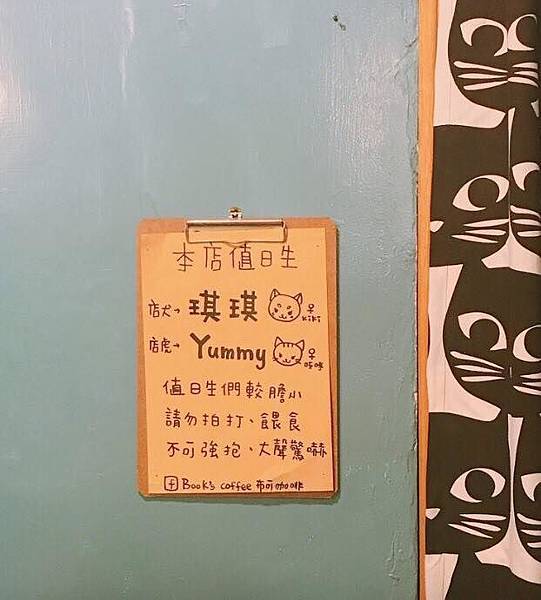 本店值日生
店犬→ 琪琪 ♀ kiki
店虎→ Yummy ♀ 咪咪
值日生們較膽小
請勿拍打、餵食
不可強抱、大聲驚嚇
f Book's coffee 布可咖啡